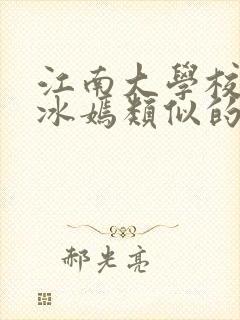 江南大學校
冰嫣類似的
郝光亮